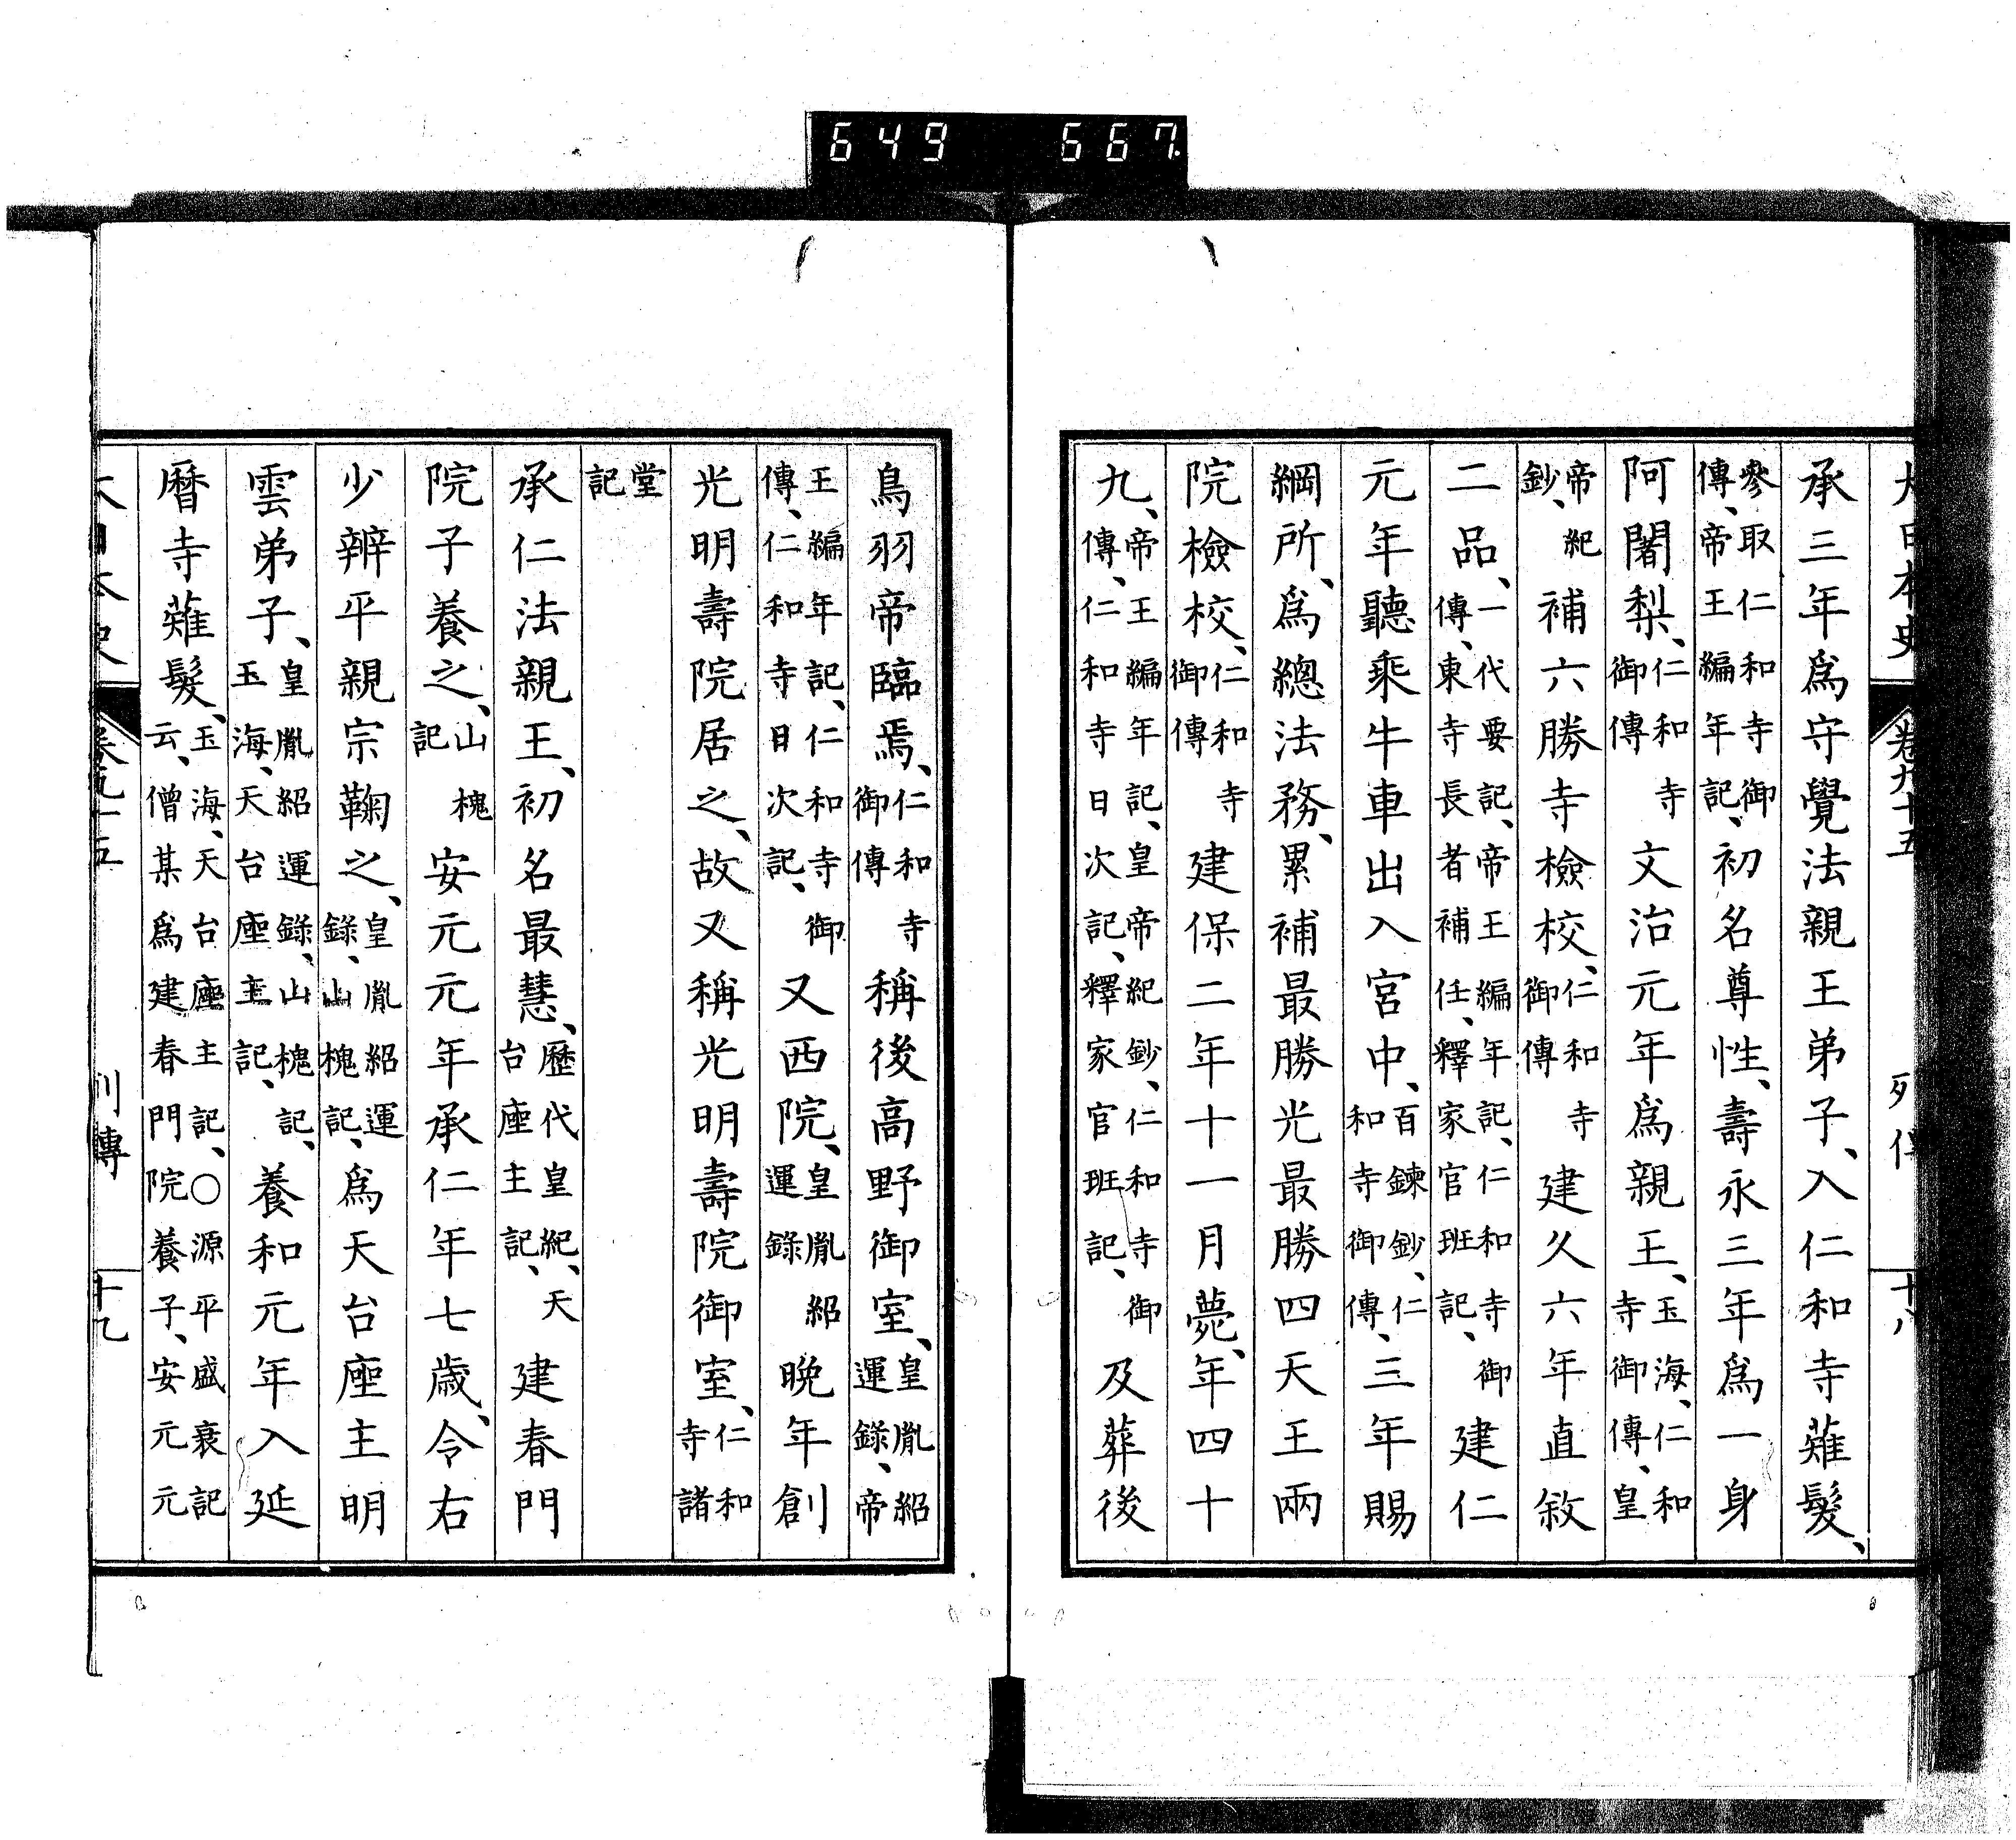 649 667.
大日本史 卷九十五 列傳 十八
承三年爲守覺法親王弟子、入仁和寺薙髮、
參取仁和寺御傳、帝王編年記、初名尊性、壽永三年爲一身
阿闍梨、仁和寺御傳文治元年爲親王、玉海、仁和寺御傳、皇
帝紀鈔、補六勝寺檢校、仁和寺御傳建久六年直敘
二品、一代要記、帝王編年記、仁和寺御傳、東寺長者補任、釋家官班記、建仁
元年聽乘牛車出入宮中、百鍊鈔、仁和寺御傳、三年賜
綱所、爲總法務、累補最勝光最勝四天王兩
院檢校、仁和寺御傳建保二年十一月薨、年四十
九、帝王編年記、皇帝紀鈔、仁和寺御傳、仁和寺日次記、釋家官班記、及葬後
鳥羽帝臨焉、仁和寺御傳稱後高野御室、皇胤紹運錄、帝
王編年記、仁和寺御傳、仁和寺日次記、又西院、皇胤紹運錄晚年創
光明壽院居之、故又稱光明壽院御室、仁和寺諸
堂記
承仁法親王、初名最慧、歷代皇紀、天台座主記、建春門
院子養之、山槐記安元元年承仁年七歲、令右
少辨平親宗鞠之、皇胤紹運錄、山槐記、爲天台座主明
雲弟子、皇胤紹運錄、山槐記、玉海、天台座主記、養和元年入延
曆寺薙髮、玉海、天台座主記、○源平盛衰記云、僧某爲建春門院養子、安元元
大日本史 卷九十五 列傳 十九